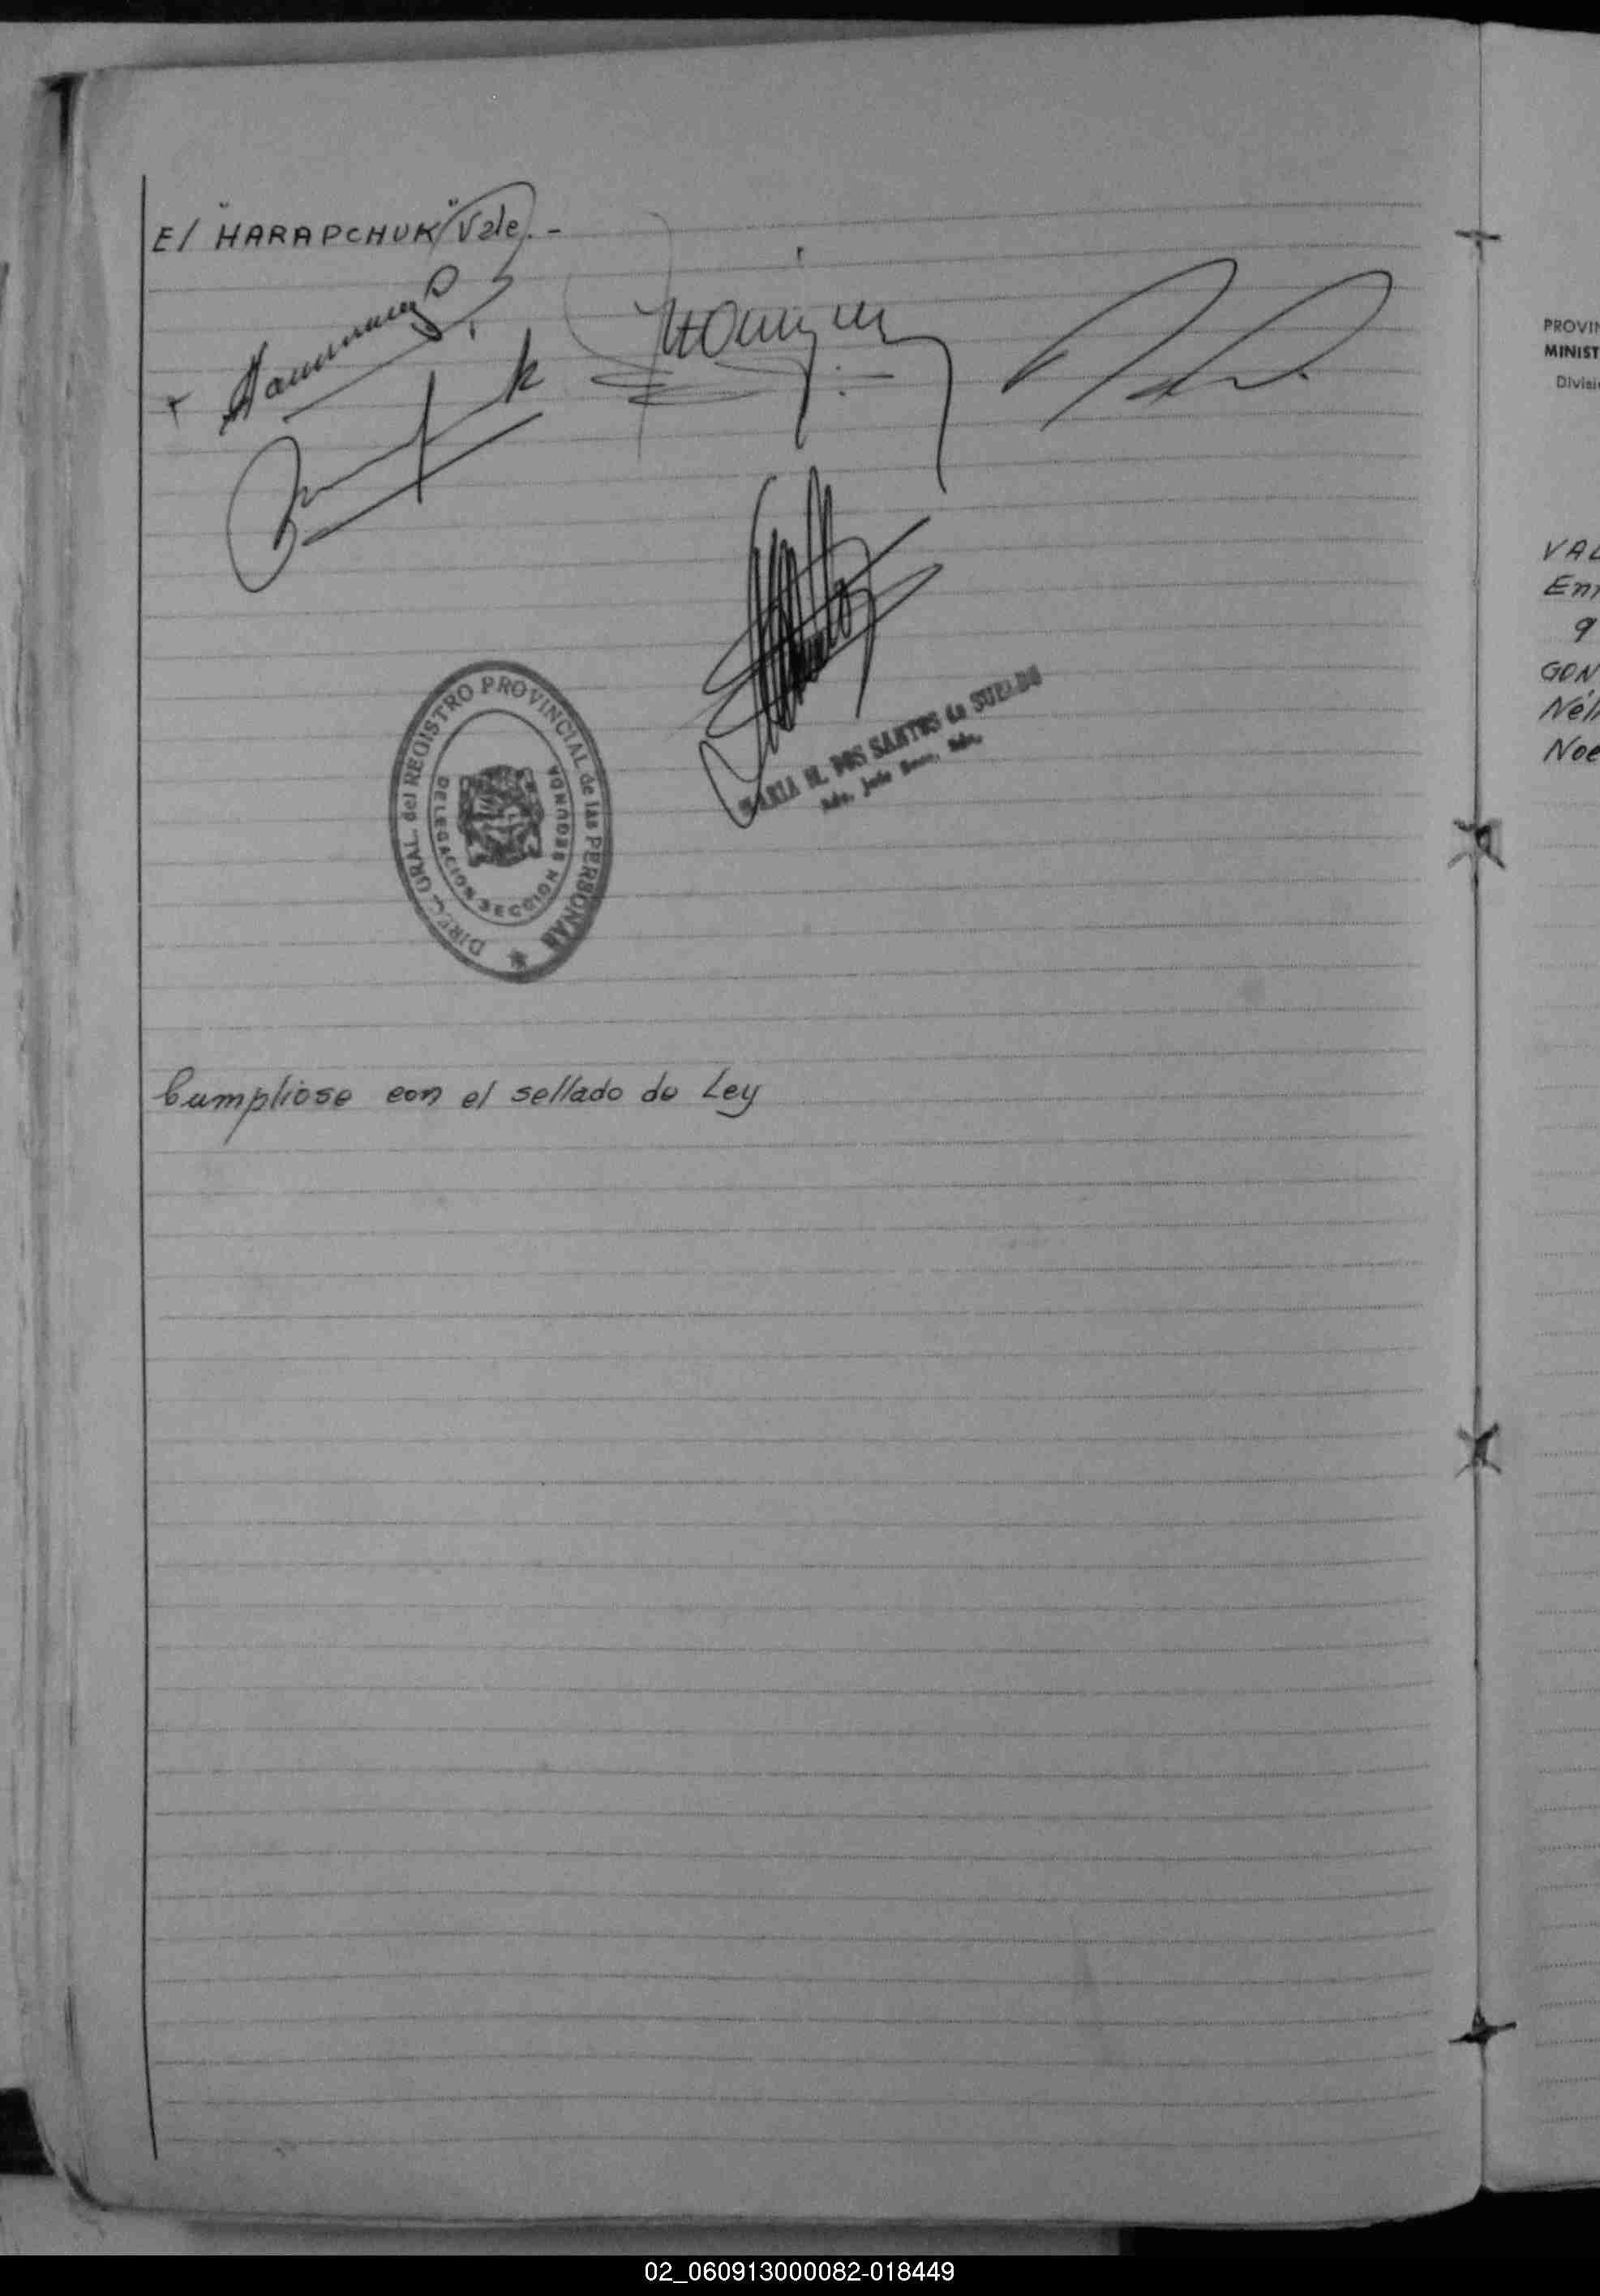 E/ "HARAPCHUK" Vale.-
DIREC. GRAL. del REGISTRO PROVINCIAL de las PERSONAS
DELEGACION SECCION SEGUNDA
MARIA M. DOS SANTOS de SUELDO
Cumpliose con el sellado de Ley
PROVIN
MINIST
Divisi
VAL
En
9
GON
Nél
Noe
02_060913000082-018449